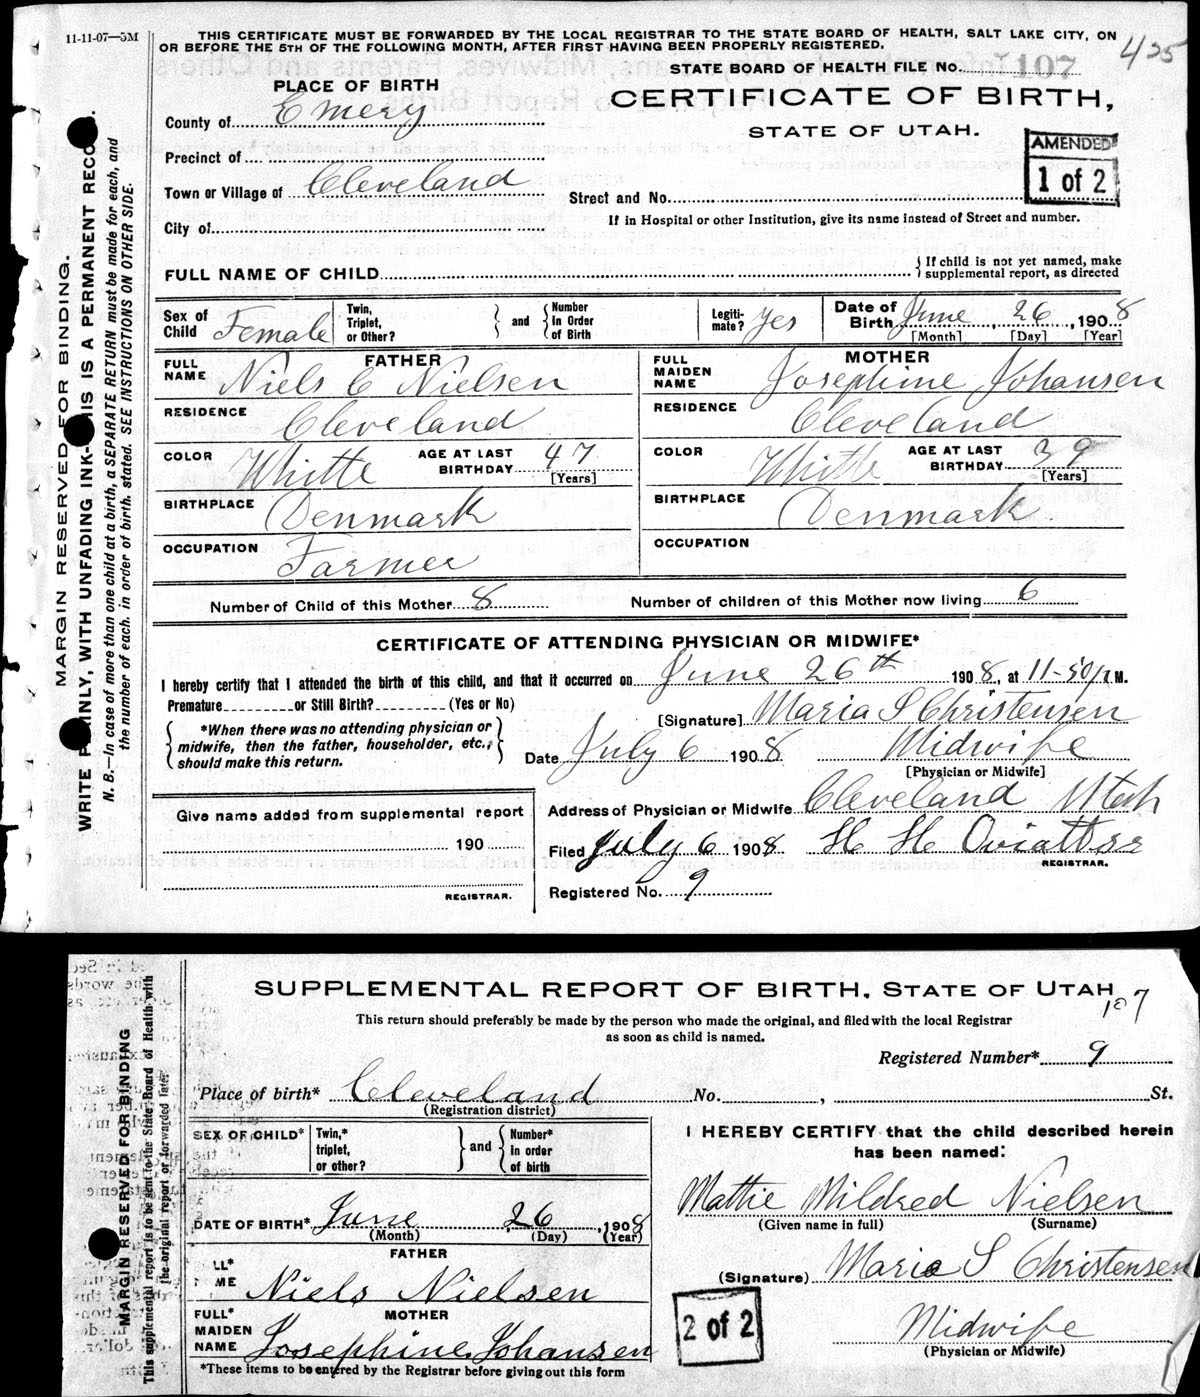 11-11-07—5M
THIS CERTIFICATE MUST BE FORWARDED BY THE LOCAL REGISTRAR TO THE STATE BOARD OF HEALTH, SALT LAKE CITY, ON
OR BEFORE THE 5TH OF THE FOLLOWING MONTH, AFTER FIRST HAVING BEEN PROPERLY REGISTERED.
425
STATE BOARD OF HEALTH FILE No. 107
PLACE OF BIRTH
CERTIFICATE OF BIRTH,
STATE OF UTAH.
County of Emery
Precinct of
Town or Village of Cleveland
City of
AMENDED
1 of 2
Street and No.
If in Hospital or other Institution, give its name instead of Street and number.
FULL NAME OF CHILD
If child is not yet named, make
supplemental report, as directed
Sex of Child Female
Twin, Triplet, or Other?
and
Number in Order of Birth
Legiti-mate? yes
Date of Birth June 26, 1908
[Month] [Day] [Year]
FATHER
FULL NAME Niels C Nielsen
RESIDENCE Cleveland
COLOR Whitte
AGE AT LAST BIRTHDAY 47
[Years]
BIRTHPLACE Denmark
OCCUPATION Farmer
MOTHER
FULL MAIDEN NAME Josephine Johansen
RESIDENCE Cleveland
COLOR Whitte
AGE AT LAST BIRTHDAY 39
[Years]
BIRTHPLACE Denmark
OCCUPATION
Number of Child of this Mother 8
Number of children of this Mother now living 6
CERTIFICATE OF ATTENDING PHYSICIAN OR MIDWIFE*
I hereby certify that I attended the birth of this child, and that it occurred on June 26th 1908, at 11-50 P.M.
Premature or Still Birth? (Yes or No)
*When there was no attending physician or
midwife, then the father, householder, etc.,
should make this return.
[Signature] Maria S Christensen
Date July 6 1908 Midwife
[Physician or Midwife]
Give name added from supplemental report
190
REGISTRAR.
Address of Physician or Midwife Cleveland Utah
Filed July 6 1908 H H Oviatt
REGISTRAR.
Registered No. 9
MARGIN RESERVED FOR BINDING.
WRITE PLAINLY, WITH UNFADING INK—THIS IS A PERMANENT RECORD.
N. B.—In case of more than one child at a birth, a SEPARATE RETURN must be made for each, and
the number of each, in order of birth, stated. SEE INSTRUCTIONS ON OTHER SIDE.
SUPPLEMENTAL REPORT OF BIRTH, STATE OF UTAH
107
This return should preferably be made by the person who made the original, and filed with the local Registrar
as soon as child is named.
Registered Number* 9
Place of birth* Cleveland No. , St.
(Registration district)
SEX OF CHILD*
Twin,* triplet, or other?
and
Number* in order of birth
DATE OF BIRTH* June 26, 1908
(Month) (Day) (Year)
FATHER
Niels Nielsen
FULL* MAIDEN NAME
MOTHER
Josephine Johansen
*These items to be entered by the Registrar before giving out this form
I HEREBY CERTIFY that the child described herein
has been named:
Mattie Mildred Nielsen
(Given name in full) (Surname)
(Signature) Maria S Christensen
Midwife
(Physician or Midwife)
2 of 2
MARGIN RESERVED FOR BINDING
This supplemental report is to be sent to the State Board of Health with
the original report or forwarded later.